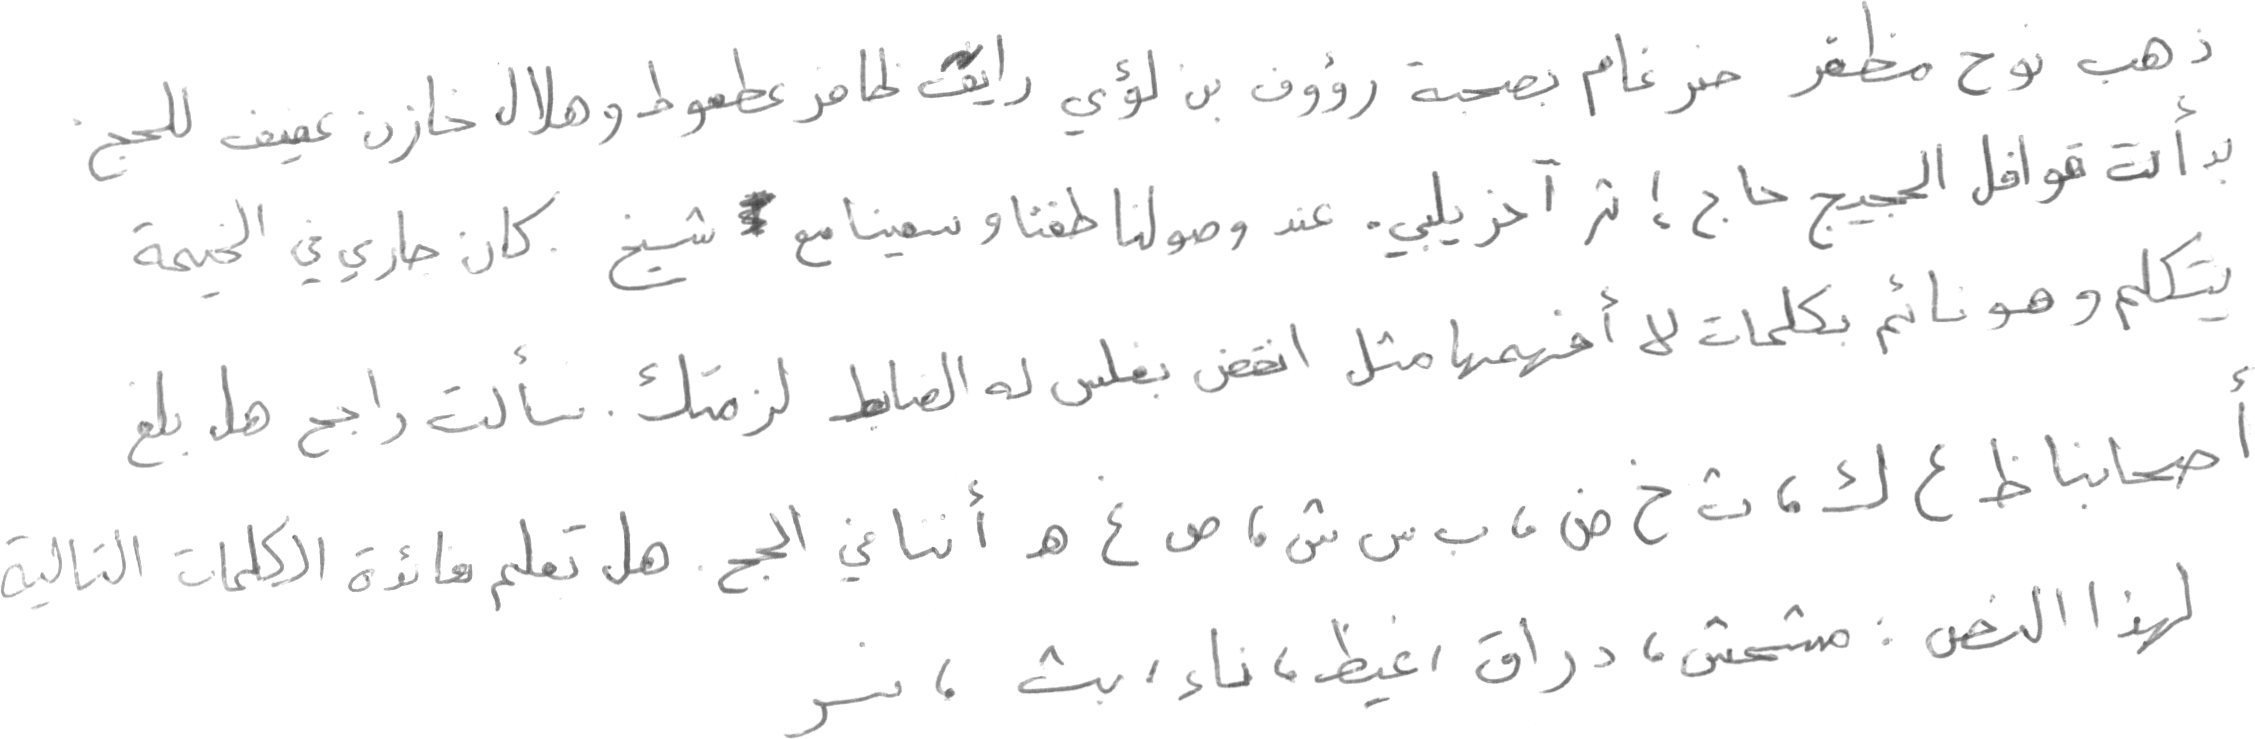 ذهب نوح مظفر ضرغام بصحبة رؤوف بن لؤي رايق ظافر عطعوط وهلال خازن عفيف للحج
بدأت قوافل الحجيج حاج إثر آخر يلبي. عند وصولنا طفنا وسعينا مع شيخ. كان جاري في الخيمة
يتكلم وهو نائم بكلمات لا أفهمها مثل انقض بغلس له الضابط لزمتك. سألت راجح هل بلغ
أصحابنا ظ ع ك، ث خ ض، ب س ش، ص غ هـ أننا في الحج. هل تعلم فائدة الكلمات التالية
لهذا النص: مشمش، دراق، غيظ، ناء، بث، نسر